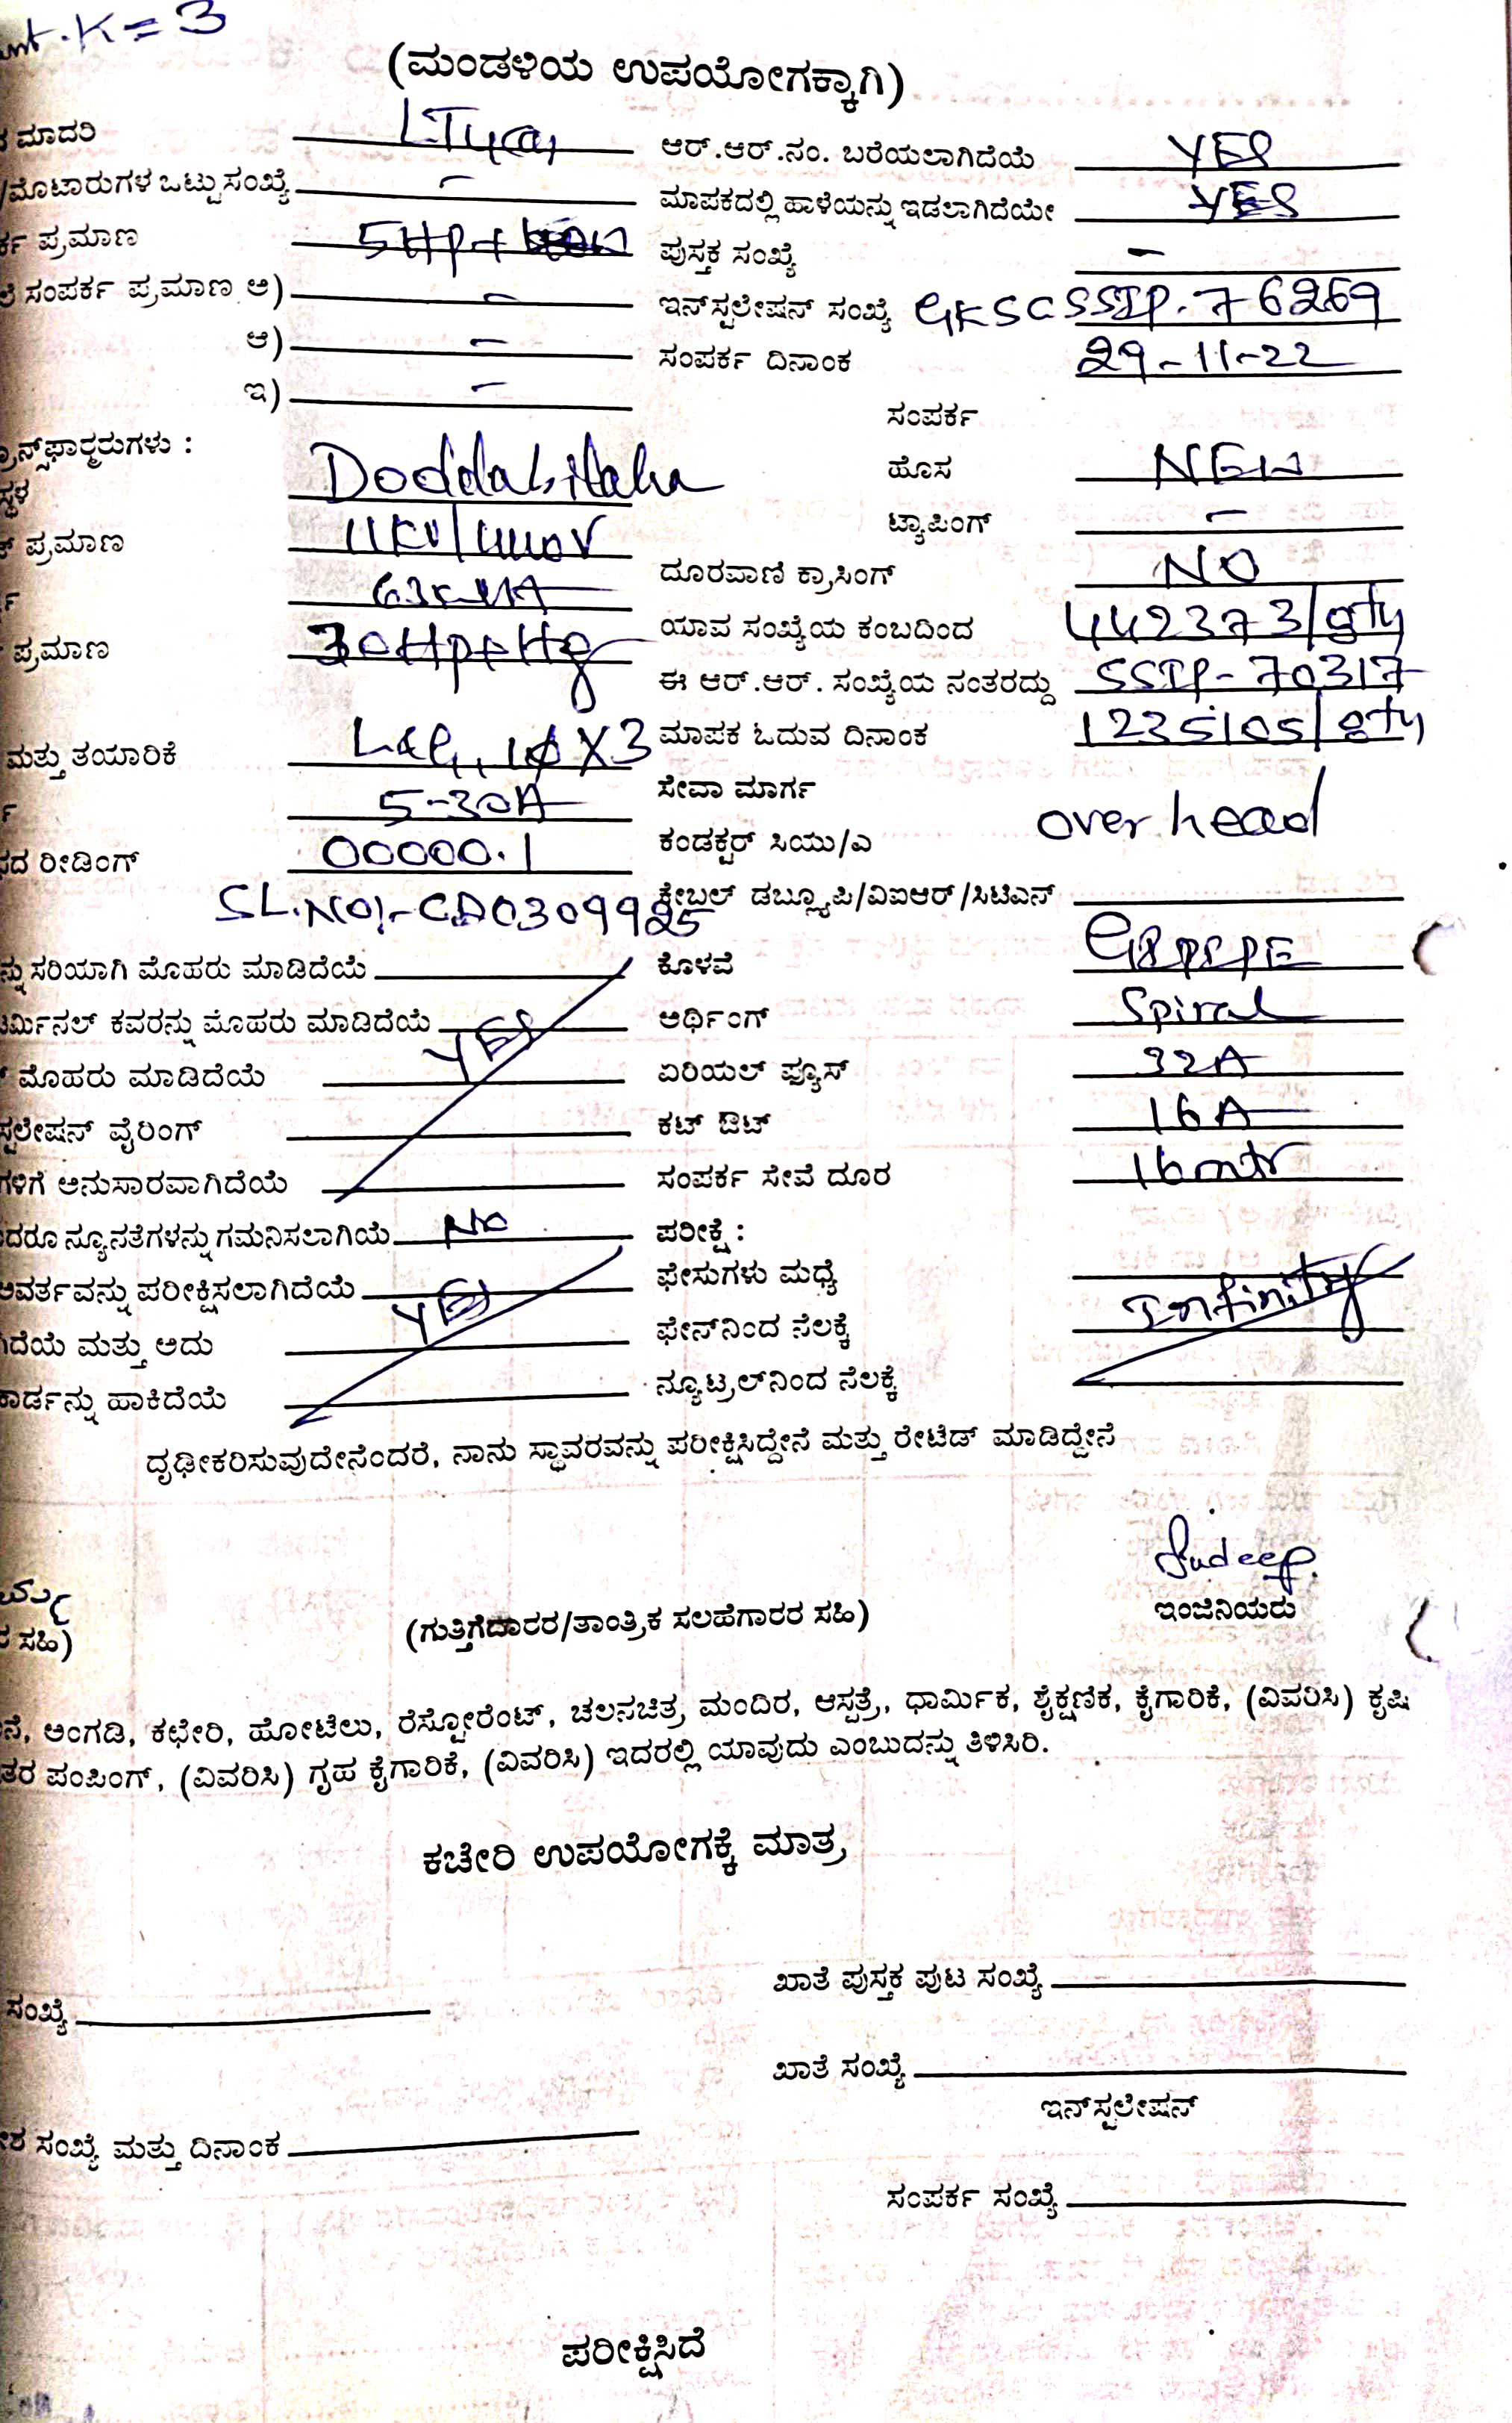 K=3
(ಮಂಡಳಿಯ ಉಪಯೋಗಕ್ಕಾಗಿ)
ಮಾದರಿ LT4(a) ಆರ್.ಆರ್.ನಂ. ಬರೆಯಲಾಗಿದೆಯೆ YES
/ಮೊಟಾರುಗಳ ಒಟ್ಟು ಸಂಖ್ಯೆ – ಮಾಪಕದಲ್ಲಿ ಹಾಳೆಯನ್ನು ಇಡಲಾಗಿದೆಯೇ YES
ಪ್ರಮಾಣ 5HP+ ಪುಸ್ತಕ ಸಂಖ್ಯೆ –
ಸಂಪರ್ಕ ಪ್ರಮಾಣ ಅ) – ಇನ್‌ಸ್ಟಲೇಷನ್ ಸಂಖ್ಯೆ GKSCSSIP-76269
ಆ) – ಸಂಪರ್ಕ ದಿನಾಂಕ 29-11-22
ಇ) –
ಸಂಪರ್ಕ
ಹೊಸ NEW
11KV/ ಟ್ಯಾಪಿಂಗ್ –
ಪ್ರಮಾಣ
63KVA ದೂರವಾಣಿ ಕ್ರಾಸಿಂಗ್ NO
ಪ್ರಮಾಣ ಯಾವ ಸಂಖ್ಯೆಯ ಕಂಬದಿಂದ 442373/gty
ಈ ಆರ್.ಆರ್. ಸಂಖ್ಯೆಯ ನಂತರದ್ದು SSIP-70317
ಮತ್ತು ತಯಾರಿಕೆ L&G, 1φX3 ಮಾಪಕ ಓದುವ ದಿನಾಂಕ 1235105/gty
5-30A ಸೇವಾ ಮಾರ್ಗ
over head
ರೀಡಿಂಗ್ 00000.1 ಕಂಡಕ್ಟರ್ ಸಿಯು/ಎ
SL.NO:-CD0309925 ಕೇಬಲ್ ಡಬ್ಲ್ಯೂಪಿ/ವಿಐಆರ್/ಸಿಟಿಎನ್
ಸರಿಯಾಗಿ ಮೊಹರು ಮಾಡಿದೆಯೆ ಕೊಳವೆ
ಕವರನ್ನು ಮೊಹರು ಮಾಡಿದೆಯೆ YES ಅರ್ಥಿಂಗ್ Spiral
ಮೊಹರು ಮಾಡಿದೆಯೆ ಏರಿಯಲ್ ಫ್ಯೂಸ್ 32A
ವೈರಿಂಗ್ ಕಟ್ ಔಟ್ 16A
ಅನುಸಾರವಾಗಿದೆಯೆ ಸಂಪರ್ಕ ಸೇವೆ ದೂರ 16mtr
ನ್ಯೂನತೆಗಳನ್ನು ಗಮನಿಸಲಾಗಿಯೆ No ಪರೀಕ್ಷೆ:
ಪರೀಕ್ಷಿಸಲಾಗಿದೆಯೆ YES ಫೇಸುಗಳು ಮಧ್ಯೆ Infinity
ಮತ್ತು ಅದು ಫೇಸ್‌ನಿಂದ ನೆಲಕ್ಕೆ
ಹಾಕಿದೆಯೆ ನ್ಯೂಟ್ರಲ್‌ನಿಂದ ನೆಲಕ್ಕೆ
ದೃಢೀಕರಿಸುವುದೇನೆಂದರೆ, ನಾನು ಸ್ಥಾವರವನ್ನು ಪರೀಕ್ಷಿಸಿದ್ದೇನೆ ಮತ್ತು ರೇಟೆಡ್ ಮಾಡಿದ್ದೇನೆ
Sudeep
ಸಹಿ) (ಗುತ್ತಿಗೆದಾರರ/ತಾಂತ್ರಿಕ ಸಲಹೆಗಾರರ ಸಹಿ) ಇಂಜಿನಿಯರು
ಅಂಗಡಿ, ಕಛೇರಿ, ಹೋಟೆಲು, ರೆಸ್ಟೋರೆಂಟ್, ಚಲನಚಿತ್ರ ಮಂದಿರ, ಆಸ್ಪತ್ರೆ, ಧಾರ್ಮಿಕ, ಶೈಕ್ಷಣಿಕ, ಕೈಗಾರಿಕೆ, (ವಿವರಿಸಿ) ಕೃಷಿ
ಪಂಪಿಂಗ್, (ವಿವರಿಸಿ) ಗೃಹ ಕೈಗಾರಿಕೆ, (ವಿವರಿಸಿ) ಇದರಲ್ಲಿ ಯಾವುದು ಎಂಬುದನ್ನು ತಿಳಿಸಿರಿ.
ಕಚೇರಿ ಉಪಯೋಗಕ್ಕೆ ಮಾತ್ರ
ಸಂಖ್ಯೆ ಖಾತೆ ಪುಸ್ತಕ ಪುಟ ಸಂಖ್ಯೆ
ಖಾತೆ ಸಂಖ್ಯೆ
ಇನ್‌ಸ್ಟಲೇಷನ್
ಸಂಖ್ಯೆ ಮತ್ತು ದಿನಾಂಕ
ಸಂಪರ್ಕ ಸಂಖ್ಯೆ
ಪರೀಕ್ಷಿಸಿದೆ